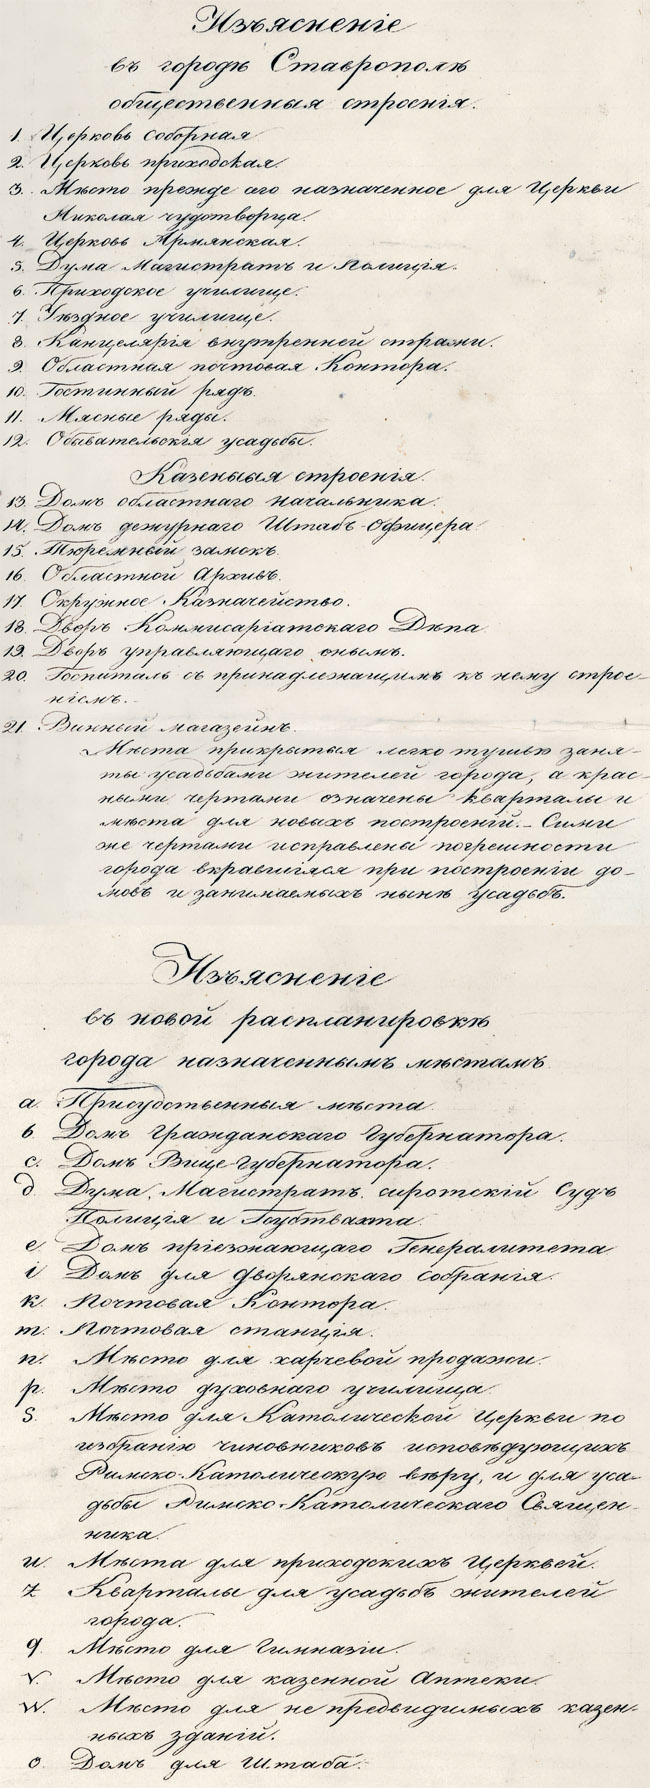 Изъясненіе
въ городѣ Ставрополѣ
общественныя строенія.
1. Церковь соборная
2. Церковь приходская.
3. Мѣсто прежде сего назначенное для Церкви
Николая чудотворца.
4. Церковь Армянская.
5. Дума Магистратъ и Полиція.
6. Приходское училище.
7. Уѣздное училище.
8. Канцелярія внутренней стражи.
9. Областная почтовая Контора.
10. Гостинный рядъ.
11. Мясные ряды.
12. Обывательскія усадьбы.
Казенныя строенія.
13. Домъ областнаго начальника.
14. Домъ дежурнаго Штабъ-Офицера.
15. Тюремный замокъ.
16. Областной Архивъ.
17. Окружное Казначейство.
18. Дворъ Коммисаріатскаго Дѣпа
19. Дворъ управляющаго онымъ.
20. Госпиталь съ принадлежащимъ къ нему строе-
ніемъ.
21. Винный магазейнъ.
Мѣста прикрытыя легко тушью заня-
ты усадьбами жителей города, а крас-
ными чертами означены кварталы и
мѣста для новыхъ построеній. – Сими
же чертами исправлены погрешности
города вкравшіяся при построеніи до-
мовъ и занимаемыхъ нынѣ усадьбъ.
Изъясненіе
въ новой распланировкѣ
города назначеннымъ мѣстамъ
a. Присудственныя мѣста
b. Домъ Гражданскаго Губернатора.
c. Домъ Вице-Губернатора.
d. Дума, Магистратъ, сиротскій Судъ
Полиція и Гауптвахта.
e. Домъ пріезжающаго Генералитета
i. Домъ для дворянскаго собранія.
k. Почтовая Контора.
m. Почтовая станція.
n. Мѣсто для харчевой продажи.
p. Мѣсто духовнаго училища.
s. Мѣсто для Католической Церкви по
избранію чиновниковъ исповѣдующихъ
Римско-Католическую вѣру, и для уса-
дьбы Римско-Католическаго Священ-
ника.
u. Мѣста для приходскихъ Церквей.
z. Кварталы для усадьбъ жителей
города.
q. Мѣсто для Гимназіи.
v. Мѣсто для казенной Аптеки.
w. Мѣсто для не предвидимыхъ казен-
ныхъ зданій.
o. Домъ для Штаба.